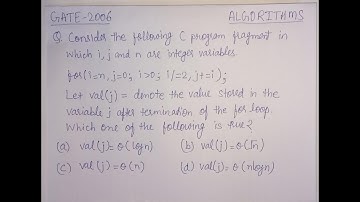 GATE-2006 ALGORITHMS
Q Consider the following C program fragment in
which i, j and n are integer variables.
for(i=n, j=0; i>0; i/=2, j+=i);
Let val(j) = denote the value stored in the
variable j after termination of the for loop.
Which one of the following is true?
(a) val(j)=θ(logn) (b) val(j)=θ(√n)
(c) val(j)=θ(n) (d) val(j)=θ(nlogn)